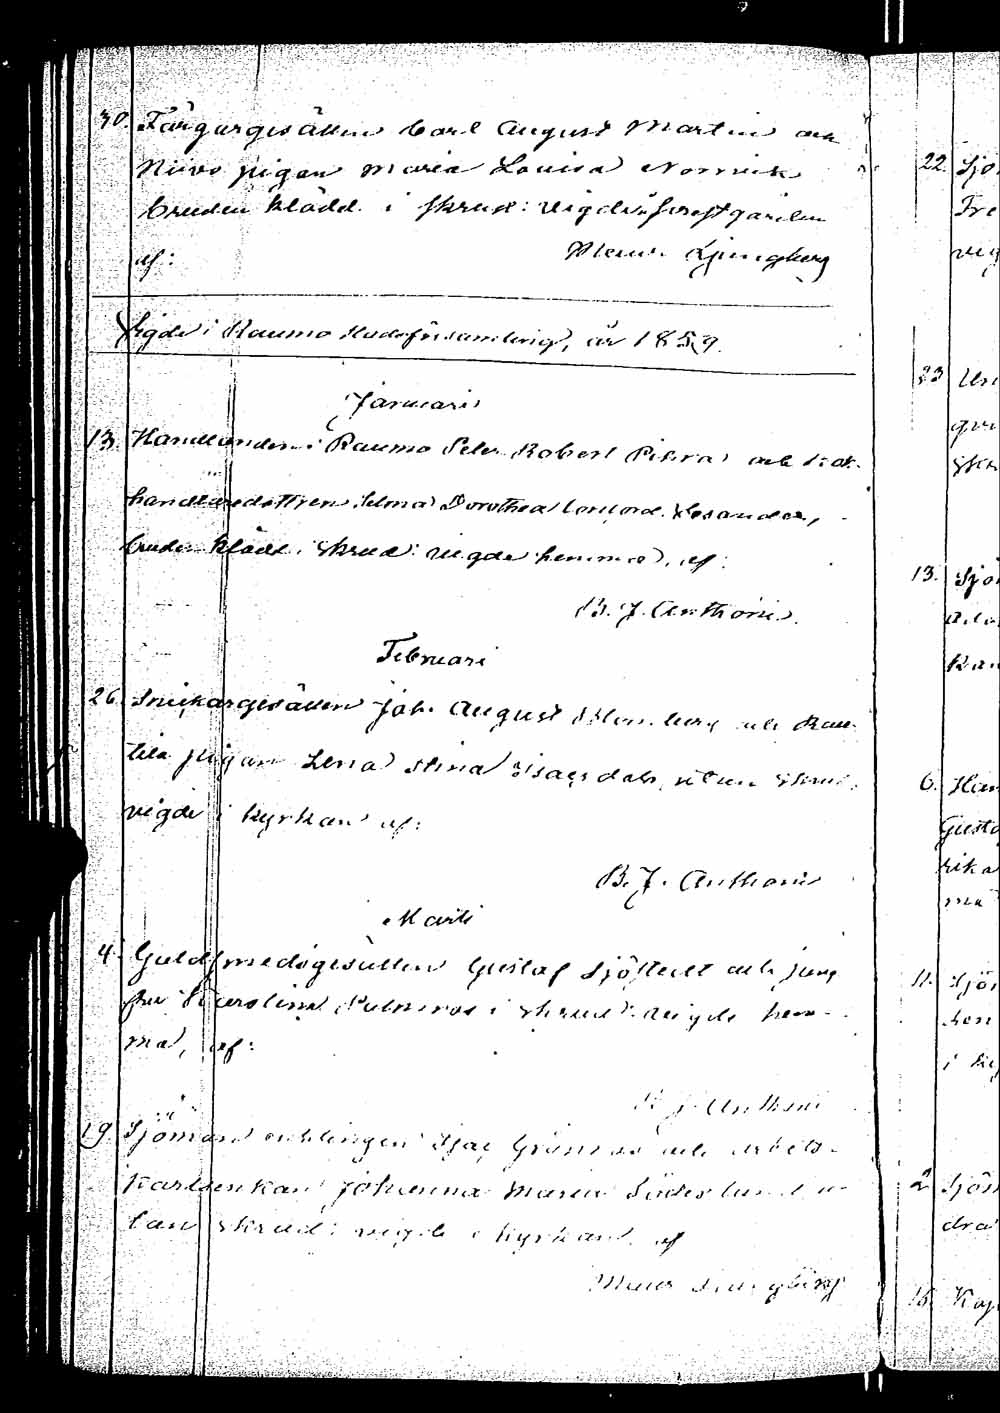 30. Färgargesällen Carl August Martin och
pigan Maria Lovisa
bruden klädd i skrud: vigde i prestgården
af: Ljungberg
Vigde i Raumo Stadsförsamling, år 1859.
Januari
13. Handlanden i Raumo Peter Robert och
handlaredottren Selma Dorothea
bruden klädd i skrud: vigde hemma, af:
B. J. Anthoni.
Februari
26. Snickargesällen Joh. August Blomberg och Rau-
pigan Lena Stina Isacsdotr, utan skrud,
vigde i kyrkan af:
B. J. Anthoni
Marti
4. Guldsmedsgesällen Gustaf Sjöstedt och jung
fru Karolina i skrud: vigde hem-
ma, af:
B. J. Anthoni
19. Sjöman enklingen Isac Grönroos och arbets-
karlsenkan Johanna Maria Söderlund u-
tan skrud: vigde i kyrkan af
Ljungberg
22. Sjö
Fre
vig
23 Un
13. Sjö
Kan
6. Han
Gusta
rika
ma
11. Sjö
sen
i ky
2 Sjöm
dra
16. Kap